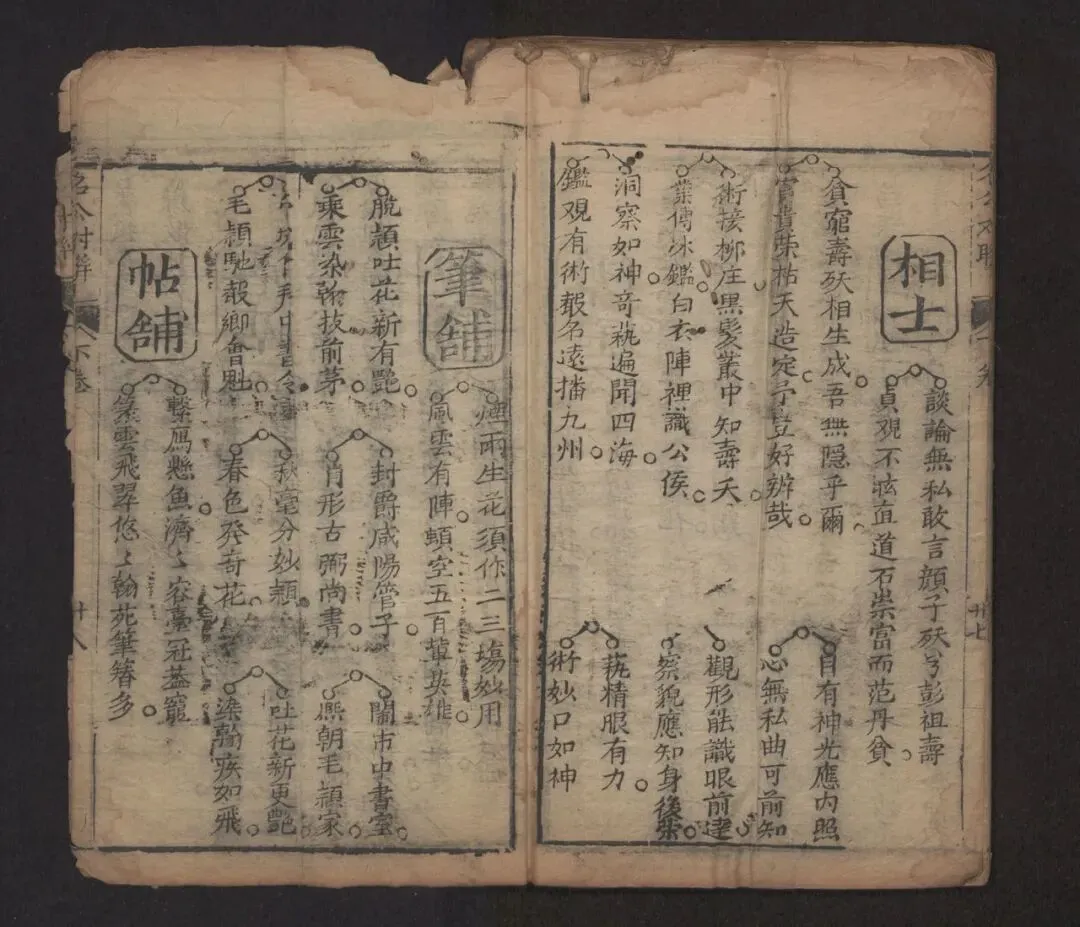 相士
談論無私敢言顔子殀兮彭祖壽
貞观不泫直道石崇富而范丹貧
貧窮壽殀相生成吾無隐乎爾
富貴荣枯天造定予豈好辨哉
目有神光應内照
心無私曲可前知
術接柳庄黒髪叢中知壽夭
業傳冰鑑白衣陣裡識公侯
觀形能識眼前
察貌應知身後荣
洞察如神奇蓺遍聞四海
鑑观有術報名遠播九州
蓺精眼有力
術妙口如神
卄七
筆舖
煙雨生花須作二三塲妙用
風雲有陣頓空五百軰英雄
脫頴吐花新有艶
乘雲染翰技前茅
封爵咸陽管子
肖形古弼尚書
闤市中書室
熈朝毛頴家
手中書令
毛穎馳報卿曾魁
秋毫分妙頴
春色発奇花
吐花新更艶
染翰疾如飛
帖舖
繫鴈懸魚濟〻容臺冠葢寵
雲飛翠悠〻翰苑筆簪多
下卷
卄八